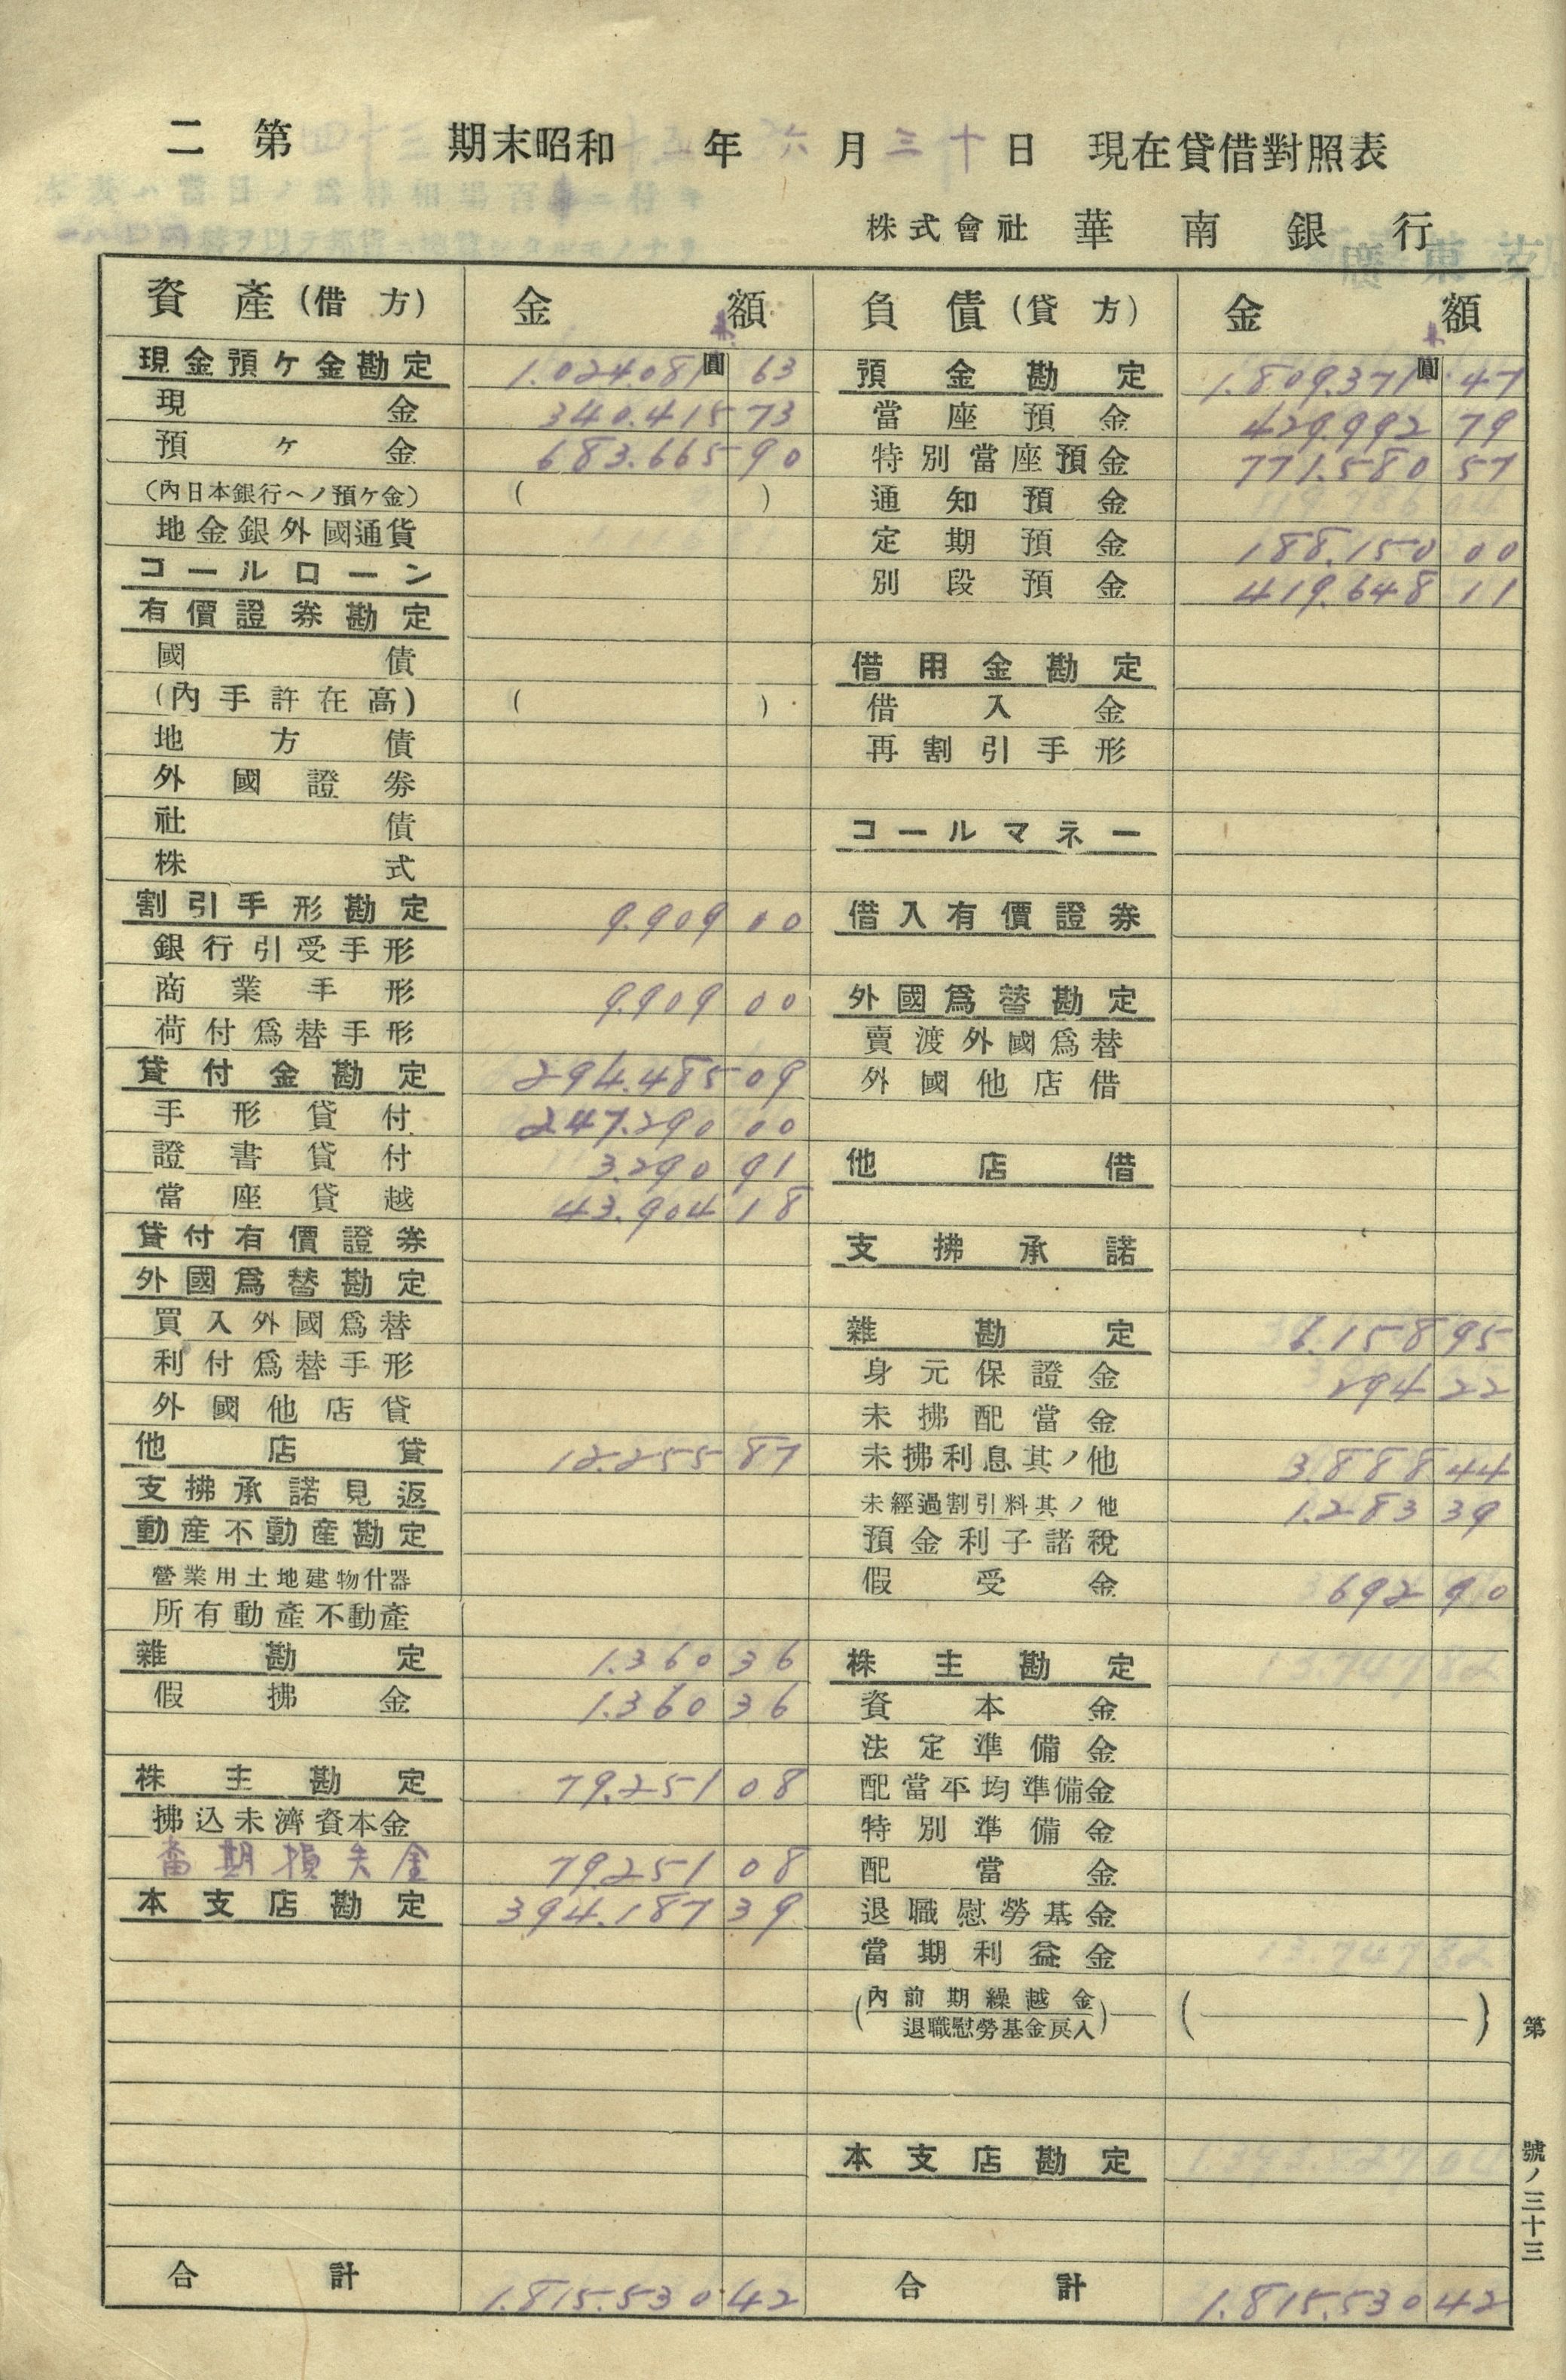 二 第 期末昭和 年 六月三十日 現在貸借對照表
株式會社 華南銀行
資產(借方) 金額 負債(貸方) 金額
現金預ケ金勘定 1.024.081圓 63 預金勘定 1.809.371圓 47
現金 340.415 73 當座預金 429.992 79
預ケ金 683.665 90 特別當座預金 771.580 57
(內日本銀行ヘノ預ケ金) ( ) 通知預金
地金銀外國通貨 定期預金 188.150 00
コールローン 別段預金 419.648 11
有價證券勘定
國債 借用金勘定
(內手許在高) ( ) 借入金
地方債 再割引手形
外國證券
社債 コールマネー
株式
割引手形勘定 9.909 00 借入有價證券
銀行引受手形
商業手形 9.909 00 外國爲替勘定
荷付爲替手形 賣渡外國爲替
貸付金勘定 294.485 09 外國他店借
手形貸付 247.290 00
證書貸付 3.290 91 他店借
當座貸越 43.904 18
貸付有價證券 支拂承諾
外國爲替勘定
買入外國爲替 雜勘定 6.158 95
利付爲替手形 身元保證金 294 22
外國他店貸 未拂配當金
他店貸 12.255 87 未拂利息其ノ他 3.888 44
支拂承諾見返 未經過割引料其ノ他 1.283 39
動產不動產勘定 預金利子諸稅
營業用土地建物什器 假受金 692 90
所有動產不動產
雜勘定 1.360 36 株主勘定
假拂金 1.360 36 資本金
法定準備金
株主勘定 79.251 08 配當平均準備金
拂込未濟資本金 特別準備金
當期損失金 79.251 08 配當金
本支店勘定 394.187 39 退職慰勞基金
當期利益金
(內前期繰越金 ( )
退職慰勞基金戾入)
本支店勘定
合計 1.815.530 42 合計 1.815.530 42
第 號ノ三十三